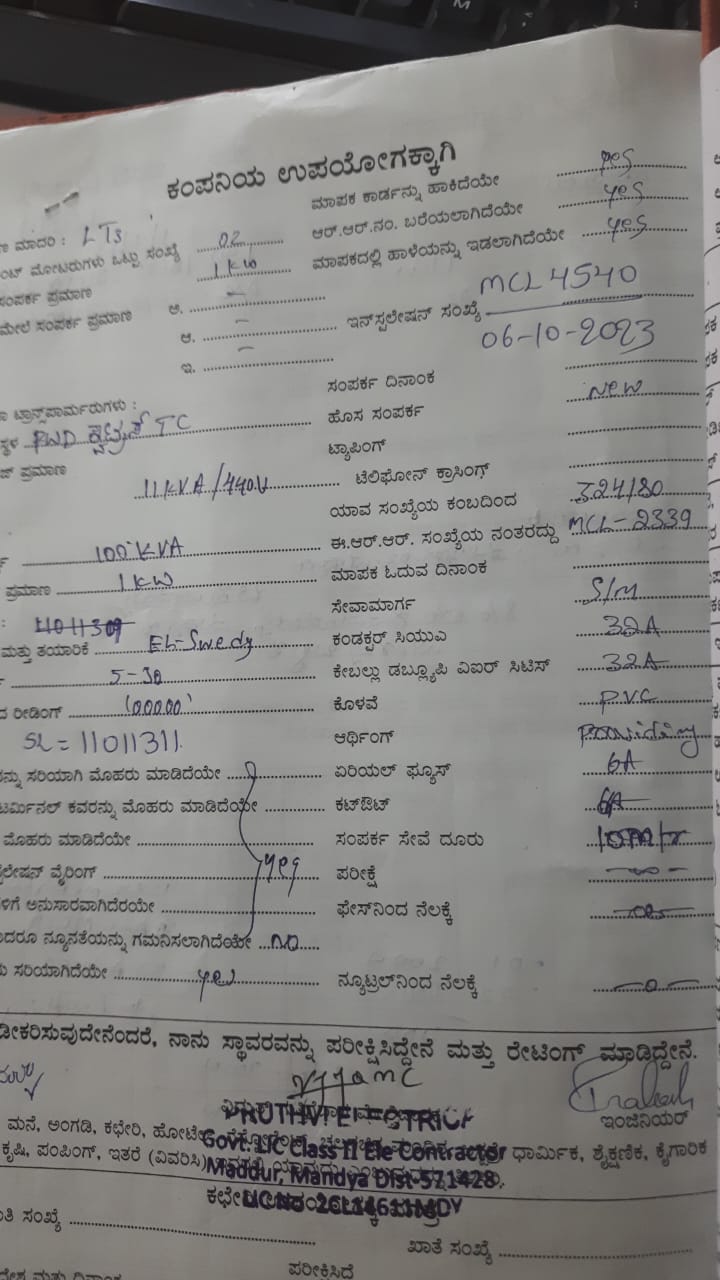 ಕಂಪನಿಯ ಉಪಯೋಗಕ್ಕಾಗಿ
ಮಾದರಿ : LT3
ಮೋಟರುಗಳು ಒಟ್ಟು ಸಂಖ್ಯೆ 02
ಸಂಪರ್ಕ ಪ್ರಮಾಣ 1 kw
ಮೇಲೆ ಸಂಪರ್ಕ ಪ್ರಮಾಣ ಅ. –
ಆ. –
ಇ. –
ಟ್ರಾನ್ಸ್‌ಪಾರ್ಮರುಗಳು :
PWD TC
ಪ್ರಮಾಣ
11 KVA/440V
100 KVA
ಪ್ರಮಾಣ 1 kw
11011309
ಮತ್ತು ತಯಾರಿಕೆ EL-Swedy
5-30
ರೀಡಿಂಗ್ '00000'
SL = 11011311
ಸರಿಯಾಗಿ ಮೊಹರು ಮಾಡಿದೆಯೇ
ಕವರನ್ನು ಮೊಹರು ಮಾಡಿದೆಯೇ
ಮೊಹರು ಮಾಡಿದೆಯೇ
ವೈರಿಂಗ್ yes
ಅನುಸಾರವಾಗಿದೆರಯೇ
ನ್ಯೂನತೆಯನ್ನು ಗಮನಿಸಲಾಗಿದೆಯೇ no
ಸರಿಯಾಗಿದೆಯೇ yes
ಮಾಪಕ ಕಾರ್ಡನ್ನು ಹಾಕಿದೆಯೇ yes
ಆರ್.ಆರ್.ನಂ. ಬರೆಯಲಾಗಿದೆಯೇ yes
ಮಾಪಕದಲ್ಲಿ ಹಾಳೆಯನ್ನು ಇಡಲಾಗಿದೆಯೇ yes
ಇನ್‌ಸ್ಪಲೇಷನ್ ಸಂಖ್ಯೆ MCL4540
06-10-2023
ಸಂಪರ್ಕ ದಿನಾಂಕ
ಹೊಸ ಸಂಪರ್ಕ New
ಟ್ಯಾಪಿಂಗ್
ಟೆಲಿಫೋನ್ ಕ್ರಾಸಿಂಗ್
ಯಾವ ಸಂಖ್ಯೆಯ ಕಂಬದಿಂದ 324/80
ಈ.ಆರ್.ಆರ್. ಸಂಖ್ಯೆಯ ನಂತರದ್ದು MCL-2339
ಮಾಪಕ ಓದುವ ದಿನಾಂಕ
ಸೇವಾಮಾರ್ಗ S/M
ಕಂಡಕ್ಟರ್ ಸಿಯುಎ 32A
ಕೇಬಲ್ಲು ಡಬ್ಲ್ಯೂಪಿ ವಿಐರ್ ಸಿಟಿಸ್ 32A
ಕೊಳವೆ PVC
ಆರ್ಥಿಂಗ್ Providing
ಏರಿಯಲ್ ಫ್ಯೂಸ್ 6A
ಕಟ್‌ಔಟ್ 6A
ಸಂಪರ್ಕ ಸೇವೆ ದೂರು 10mtr
ಪರೀಕ್ಷೆ
ಫೇಸ್‌ನಿಂದ ನೆಲಕ್ಕೆ
ನ್ಯೂಟ್ರಲ್‌ನಿಂದ ನೆಲಕ್ಕೆ –0–
ನಾನು ಸ್ಥಾವರವನ್ನು ಪರೀಕ್ಷಿಸಿದ್ದೇನೆ ಮತ್ತು ರೇಟಿಂಗ್ ಮಾಡಿದ್ದೇನೆ.
ಇಂಜಿನಿಯರ್
PRUTHVI ELECTRICAL
ಮನೆ, ಅಂಗಡಿ, ಕಛೇರಿ, ಧಾರ್ಮಿಕ, ಶೈಕ್ಷಣಿಕ, ಕೈಗಾರಿಕ
Govt. LIC Class II Ele Contractor
ಕೃಷಿ, ಪಂಪಿಂಗ್, ಇತರೆ (ವಿವರಿಸಿ)
Maddur, Mandya Dist-571428
ಖಾತೆ ಸಂಖ್ಯೆ
ಪರೀಕ್ಷಿಸಿದೆ